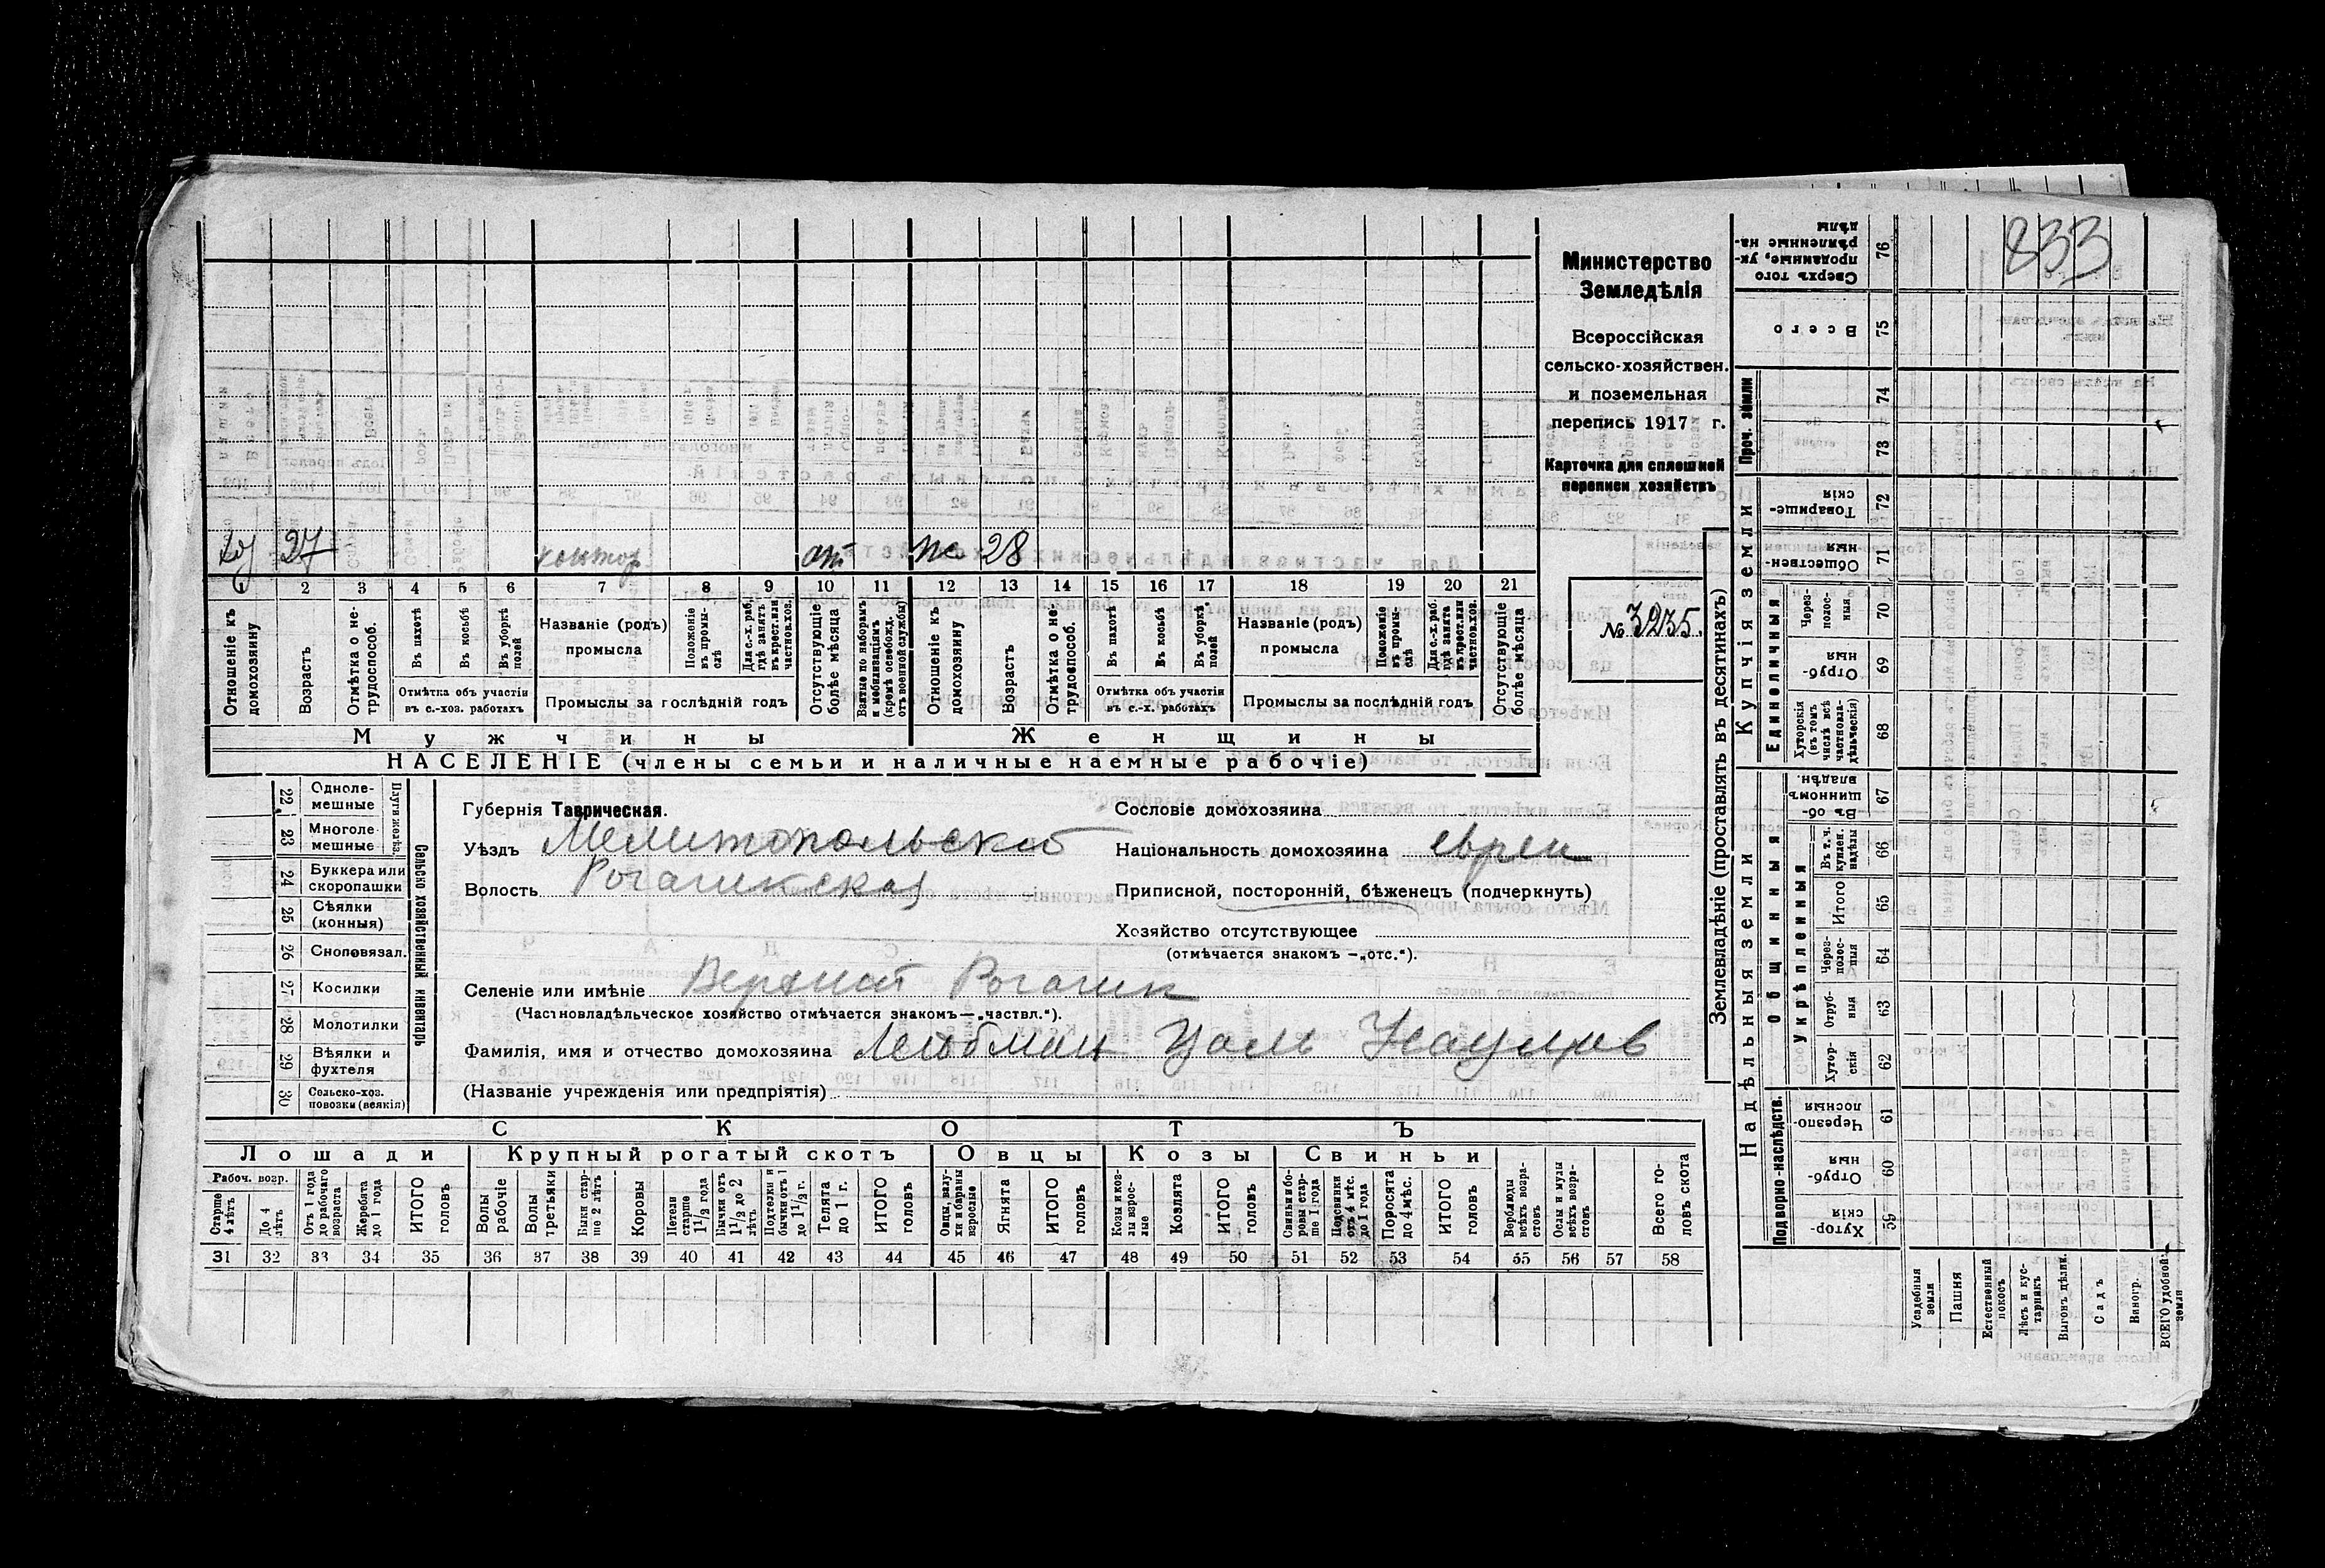 833
Министерство
Земледѣлія
Всероссійская
сельско-хозяйствен.
и поземельная
перепись 1917 г.
Карточка для сплошной
переписи хозяйствъ
№ 3235.
27
контор
28
1 2 3 4 5 6 7 8 9 10 11 12 13 14 15 16 17 18 19 20 21
Отношеніе къ домохозяину
Возрастъ
Отмѣтка о не-трудоспособ.
Въ пахотѣ
Въ косьбѣ
Въ уборкѣ полей
Отмѣтка объ участіи
въ с.-хоз. работахъ
Названіе (родъ)
промысла
Положеніе въ промы-слѣ
Для с.-х. раб. гдѣ занятъ въ крест. или частнов. хоз.
Промыслы за послѣдній годъ
Отсутствующіе болѣе мѣсяца
Взятые по наборамъ и мобилизаціямъ (кромѣ освобожд. отъ военной службы)
Отношеніе къ домохозяину
Возрастъ
Отмѣтка о не-трудоспособ.
Въ пахотѣ
Въ косьбѣ
Въ уборкѣ полей
Отмѣтка объ участіи
въ с.-х. работахъ
Названіе (родъ)
промысла
Положеніе въ промы-слѣ
Для с.-х. раб. гдѣ занята въ крест. или частнов. хоз.
Промыслы за послѣдній годъ
Отсутствующіе болѣе мѣсяца
Мужчины Женщины
НАСЕЛЕНІЕ (члены семьи и наличные наемные рабочіе)
22 Одноле-мешные
23 Многоле-мешные
Плуги желѣз.
24 Буккера или скоропашки
25 Сѣялки (конныя)
26 Сноповязал.
27 Косилки
28 Молотилки
29 Вѣялки и фухтеля
30 Сельско-хоз. повозки (всякія)
Сельско хозяйственный инвентарь
Губернія Таврическая.
Уѣздъ Мелитопольский
Волость Рогачикская
Сословіе домохозяина
Національность домохозяина евреи
Приписной, посторонній, бѣженецъ (подчеркнуть)
Хозяйство отсутствующее
(отмѣчается знакомъ —„отс.“).
Селеніе или имѣніе Верхній Рогачик
(Частновладѣльческое хозяйство отмѣчается знакомъ—„частвл.“).
Фамилія, имя и отчество домохозяина Лейбман
(Названіе учрежденія или предпріятія)
СКОТЪ
Лошади Крупный рогатый скотъ Овцы Козы Свиньи
Рабоч. возр.
Старше 4 лѣтъ
До 4 лѣтъ
Отъ 1 года до рабочаго возраста
Жеребята до 1 года
ИТОГО головъ
Волы рабочіе
Волы третьяки
Быки стар-ше 2 лѣтъ
Коровы
Нетели старше 1½ года
Бычки отъ 1½ до 2 лѣтъ
Подтелки и бычки отъ 1 до 1½ г.
Телята до 1 г.
ИТОГО головъ
Овцы, валу-хи и бараны взрослые
Ягнята
ИТОГО головъ
Козы и коз-лы взрос-лые
Козлята
ИТОГО головъ
Свиньи и бо-ровы стар-ше 1 года
Подсвинки отъ 4 мѣс. до 1 года
Поросята до 4 мѣс.
ИТОГО головъ
Верблюды всѣхъ возра-стовъ
Ослы и мулы всѣхъ возра-стовъ
Всего го-ловъ скота
31 32 33 34 35 36 37 38 39 40 41 42 43 44 45 46 47 48 49 50 51 52 53 54 55 56 57 58
Землевладѣніе (проставлять въ десятинахъ)
Купчія земли
Надѣльныя земли
Сверхъ того проданные, ук-рѣпленные на-дѣлы 76
Всего 75
Проч. земли 74 73
Товарище-скія 72
Обществен-ныя 71
Единоличныя
Через-полос-ныя 70
Отруб-ныя 69
Хуторскія (въ томъ числѣ всѣ частновла-дѣльческія) 68
Общинныя
Въ об-щинномъ владѣн. 67
Укрѣпленныя
Въ т. ч. куплен. надѣлы 66
Итого 65
Через-полос-ныя 64
Отруб-ныя 63
Хутор-скія 62
Подворно-наслѣдств.
Черезпо-лосныя 61
Отруб-ныя 60
Хутор-скія 59
Усадебныя земли
Пашня
Естественный покосъ
Лѣсъ и кус-тарникъ
Выгонъ цѣлин.
Садъ
Виногр.
ВСЕГО удобной земли